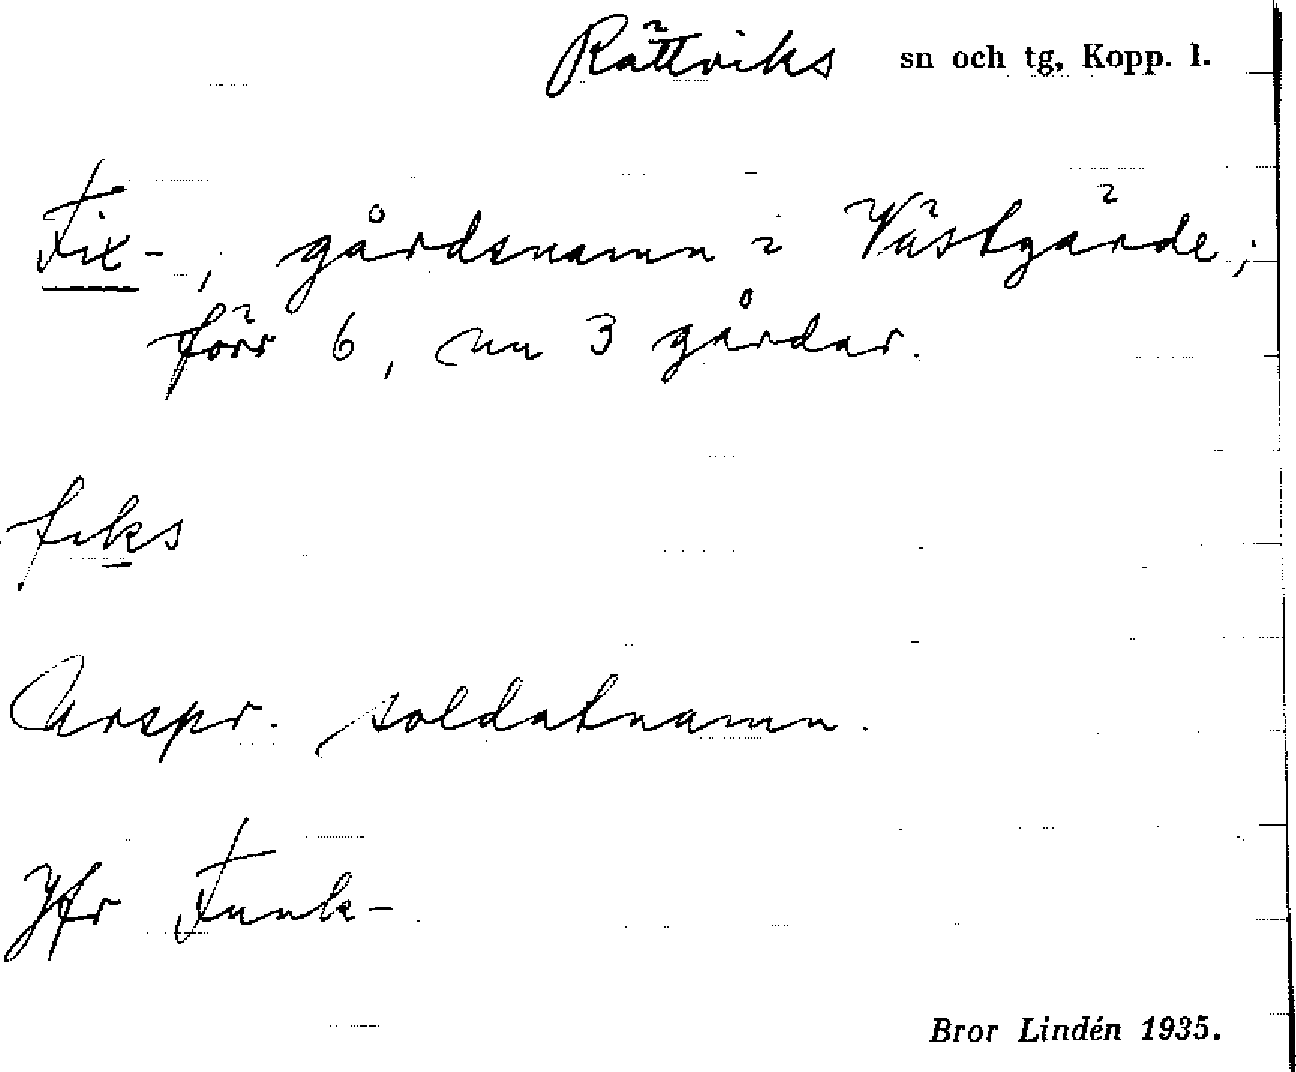 Rättviks sn och tg, Kopp. l.
Fix-, gårdsnamn i Västgärde;
förr 6, nu 3 gårdar.
fiks
Urspr. soldatnamn.
Jfr Funk-
Bror Lindén 1935.